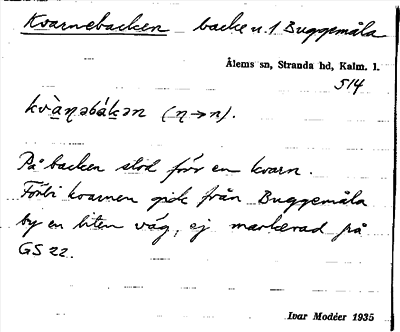 Kvarnebacken backe u. 1 Buggemåla
Ålems sn, Stranda hd, Kalm. l.
514
kv̀a̱ɳəbák̠ən (ɳ→n).
På backen stod förr en kvarn.
Förbi kvarnen gick från Buggemåla
by en liten väg, ej markerad på
GS 22.
Ivar Modéer 1935